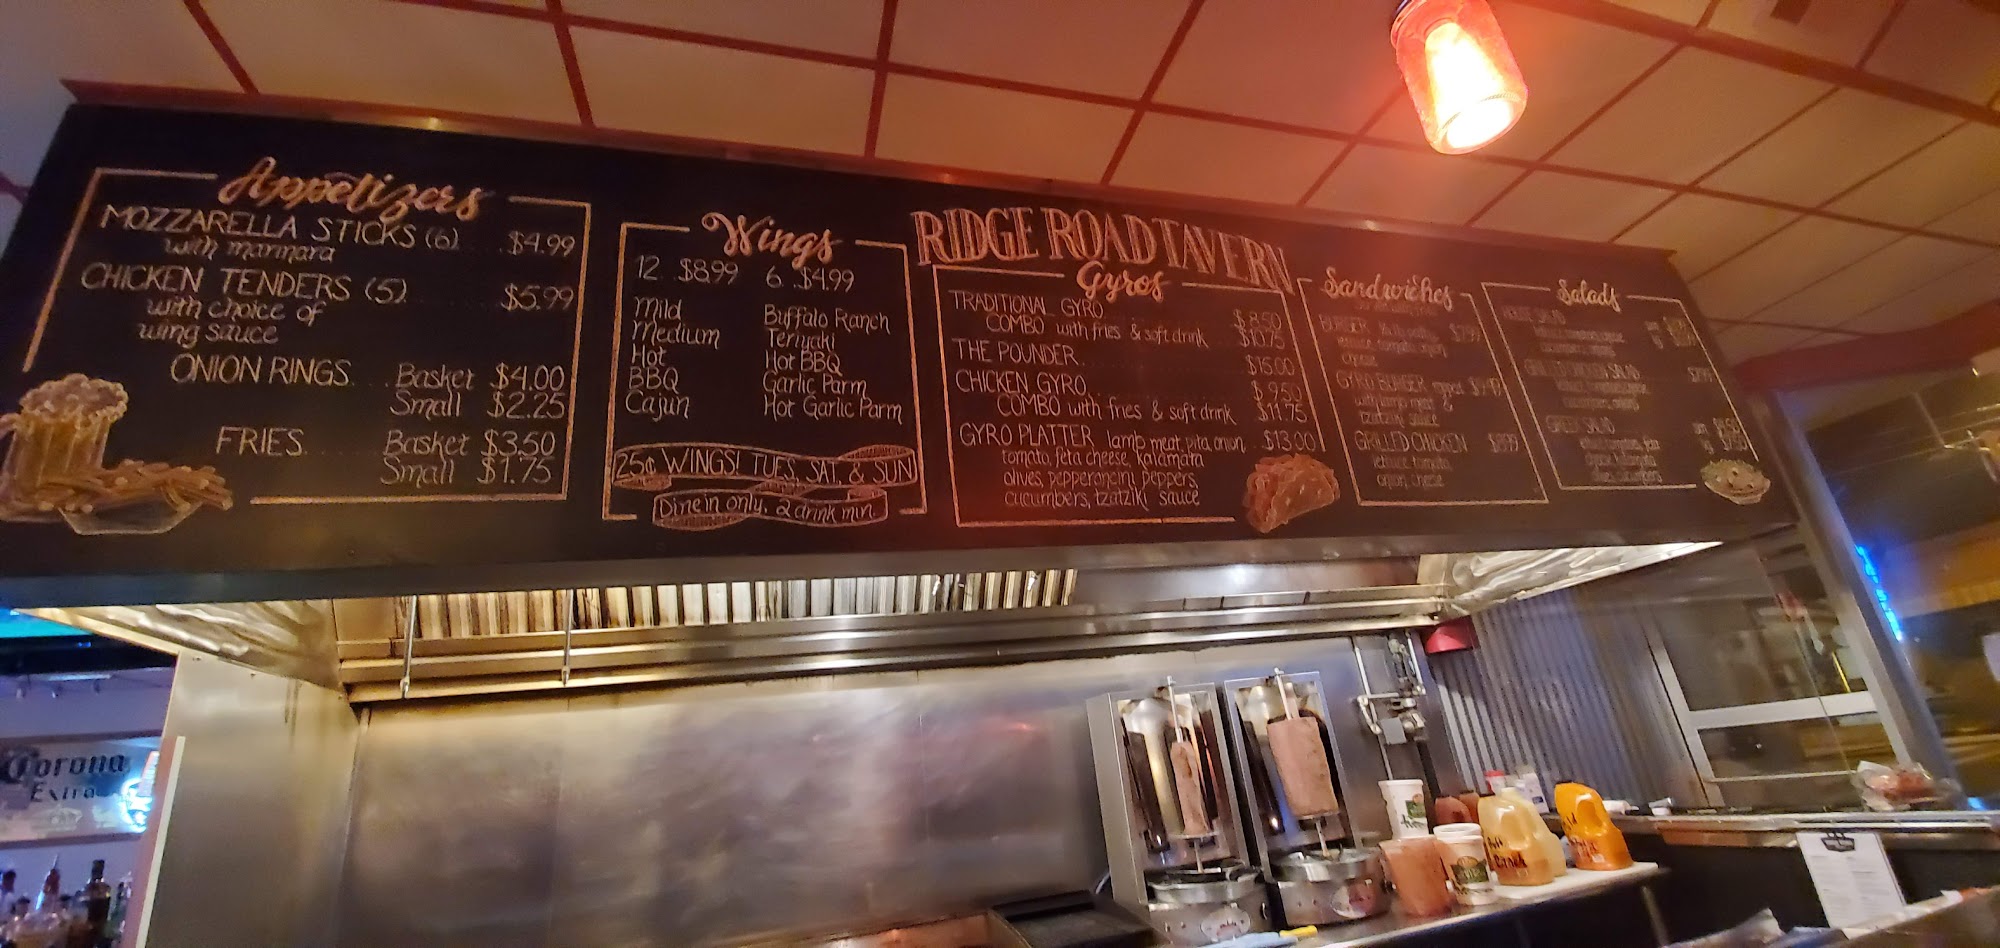 Appetizers
MOZZARELLA STICKS (6) ... $4.99
with marinara
CHICKEN TENDERS (5) ... $5.99
with choice of
wing sauce
ONION RINGS... Basket $4.00
Small $2.25
FRIES ... Basket $3.50
Small $1.75
Wings
12..$8.99 6..$4.99
Mild
Medium
Hot
BBQ
Cajun
Buffalo Ranch
Teriyaki
Hot BBQ
Garlic Parm
Hot Garlic Parm
25¢ WINGS! TUES, SAT, & SUN
Dine in only, 2 drink min.
RIDGE ROAD TAVERN
Gyros
TRADITIONAL GYRO ... $8.50
COMBO with fries & soft drink ... $10.75
THE POUNDER ... $15.00
CHICKEN GYRO ... $9.50
COMBO with fries & soft drink $11.75
GYRO PLATTER lamb meat, pita, onion, $13.00
tomato, feta cheese, kalamata
olives, pepperoncini peppers,
cucumbers, tzatziki sauce
Sandwiches
BURGER $7.99
lettuce, tomato, onion
cheese
GYRO BURGER
with lamb meat &
tzatziki sauce
GRILLED CHICKEN
lettuce, tomato,
onion, cheese
Salads
HOUSE SALAD
GRILLED CHICKEN SALAD
GREEK SALAD
Corona
Extra
Ranch